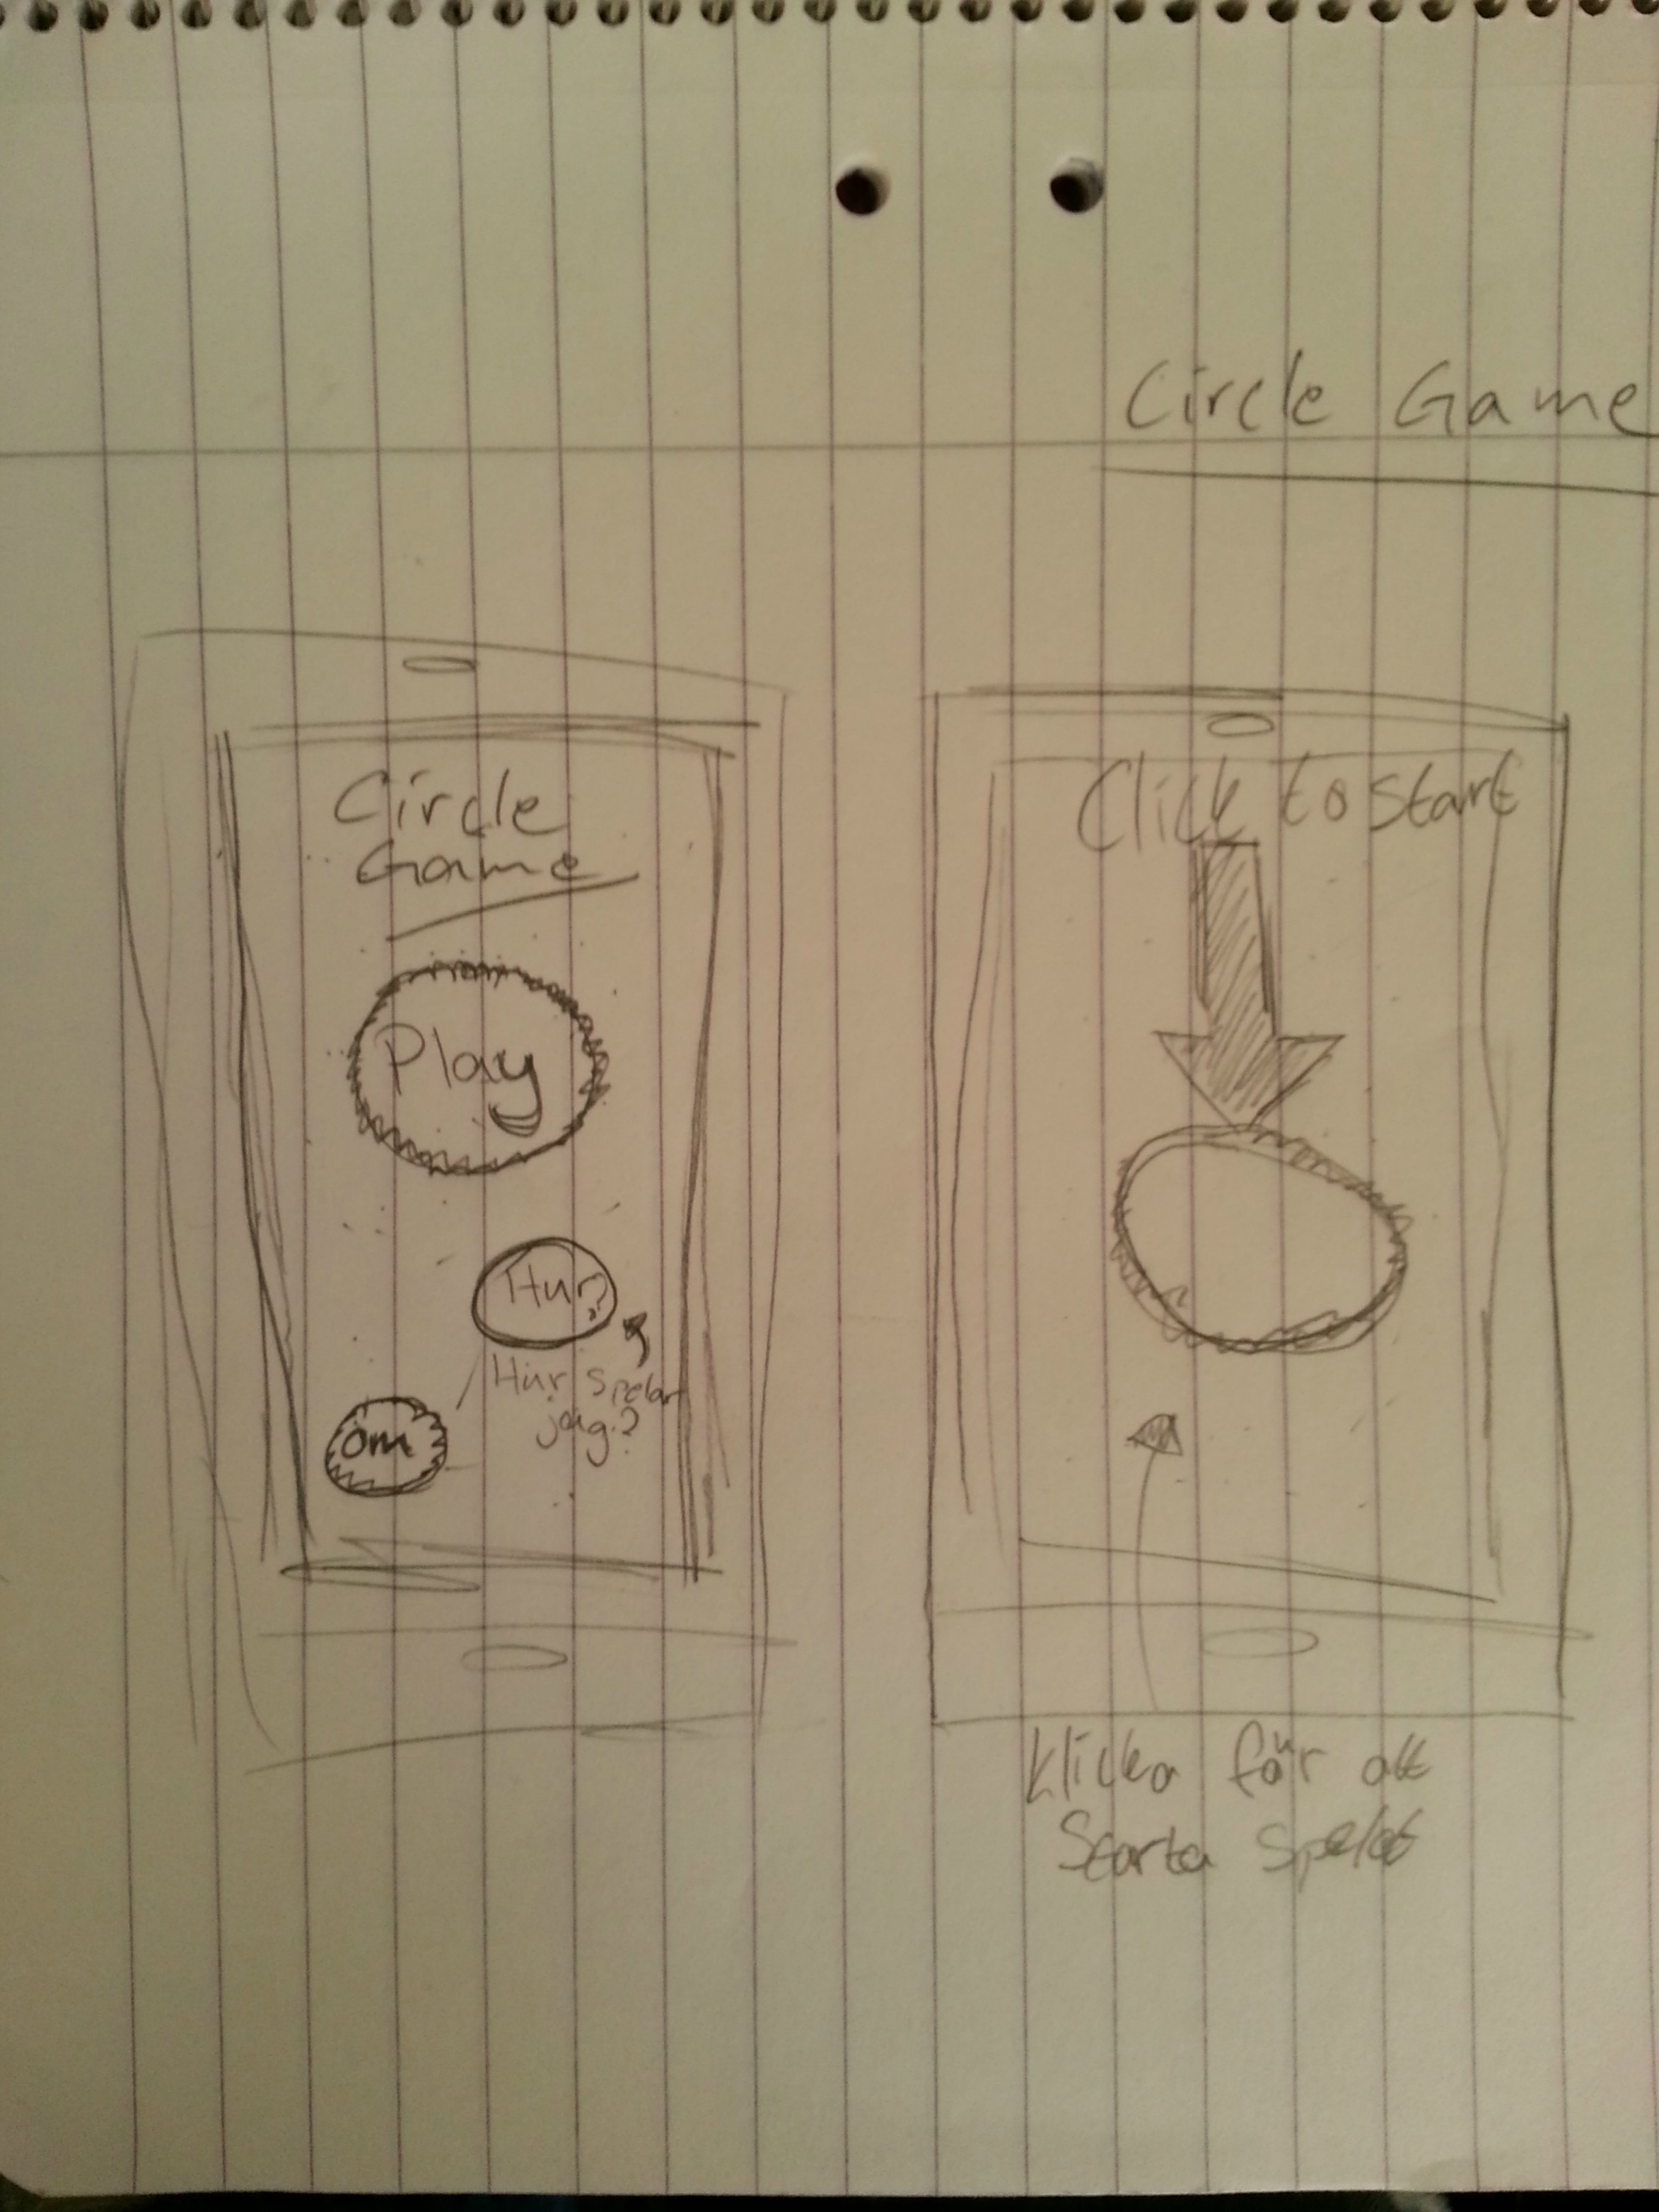 Circle Game
Circle
Game
Play
Hur?
Hur spelar
jag?
om
Click to start
Klicka för att
Starta spelet